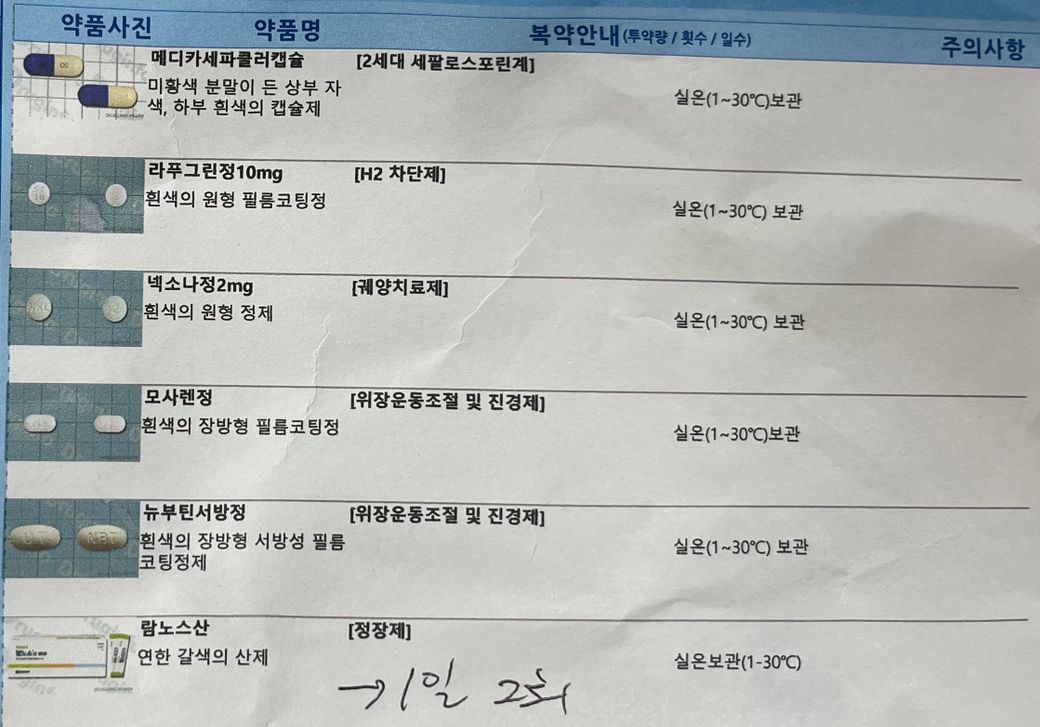 약품사진 약품명 복약안내(투약량 / 횟수 / 일수) 주의사항
메디카세파클러캡슐 [2세대 세팔로스포린계]
미황색 분말이 든 상부 자
색, 하부 흰색의 캡슐제
실온(1~30℃)보관
라푸그린정10mg [H2 차단제]
흰색의 원형 필름코팅정
실온(1~30℃) 보관
넥소나정2mg [궤양치료제]
흰색의 원형 정제
실온(1~30℃) 보관
모사렌정 [위장운동조절 및 진경제]
흰색의 장방형 필름코팅정
실온(1~30℃)보관
뉴부틴서방정 [위장운동조절 및 진경제]
NBT
흰색의 장방형 서방성 필름
코팅정제
실온(1~30℃) 보관
람노스산 [정장제]
연한 갈색의 산제
실온보관(1-30℃)
→ 1일 2회